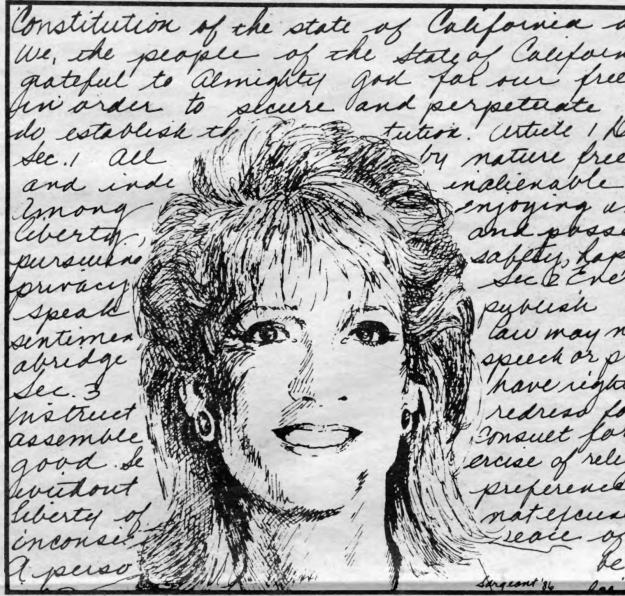 Constitution of the state of California a
We, the people of the State of Califor
grateful to Almighty God for our free
in order to secure and perpetuate
do establish th tution. Article 1 D
Sec. 1 All by nature free
and inde inalienable
among enjoying a
liberty, and posse
pursuing safety, hap
privacy Sec 2 Eve
speak publish
sentimen law may n
abridge speech or p
Sec. 3 have right
instruct redress fo
assemble consult for
good. Se ercise of reli
without preference
liberty of not excuse
inconsis peace or
A perso be
Sargeant '86